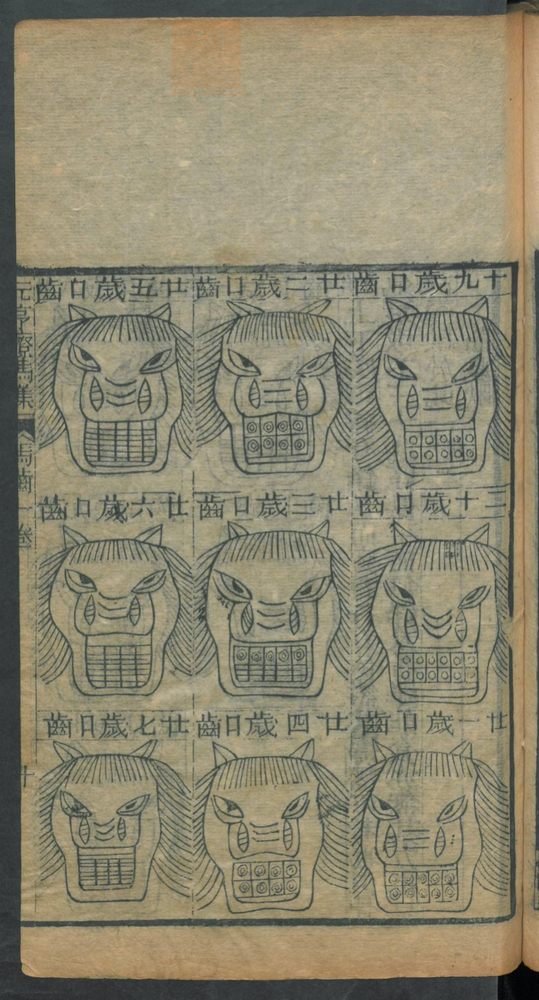 十九歲口齒
三十歲口齒
廿一歲口齒
廿二歲口齒
廿三歲口齒
廿四歲口齒
廿五歲口齒
廿六歲口齒
廿七歲口齒
元亨療馬集
馬齒一卷
十